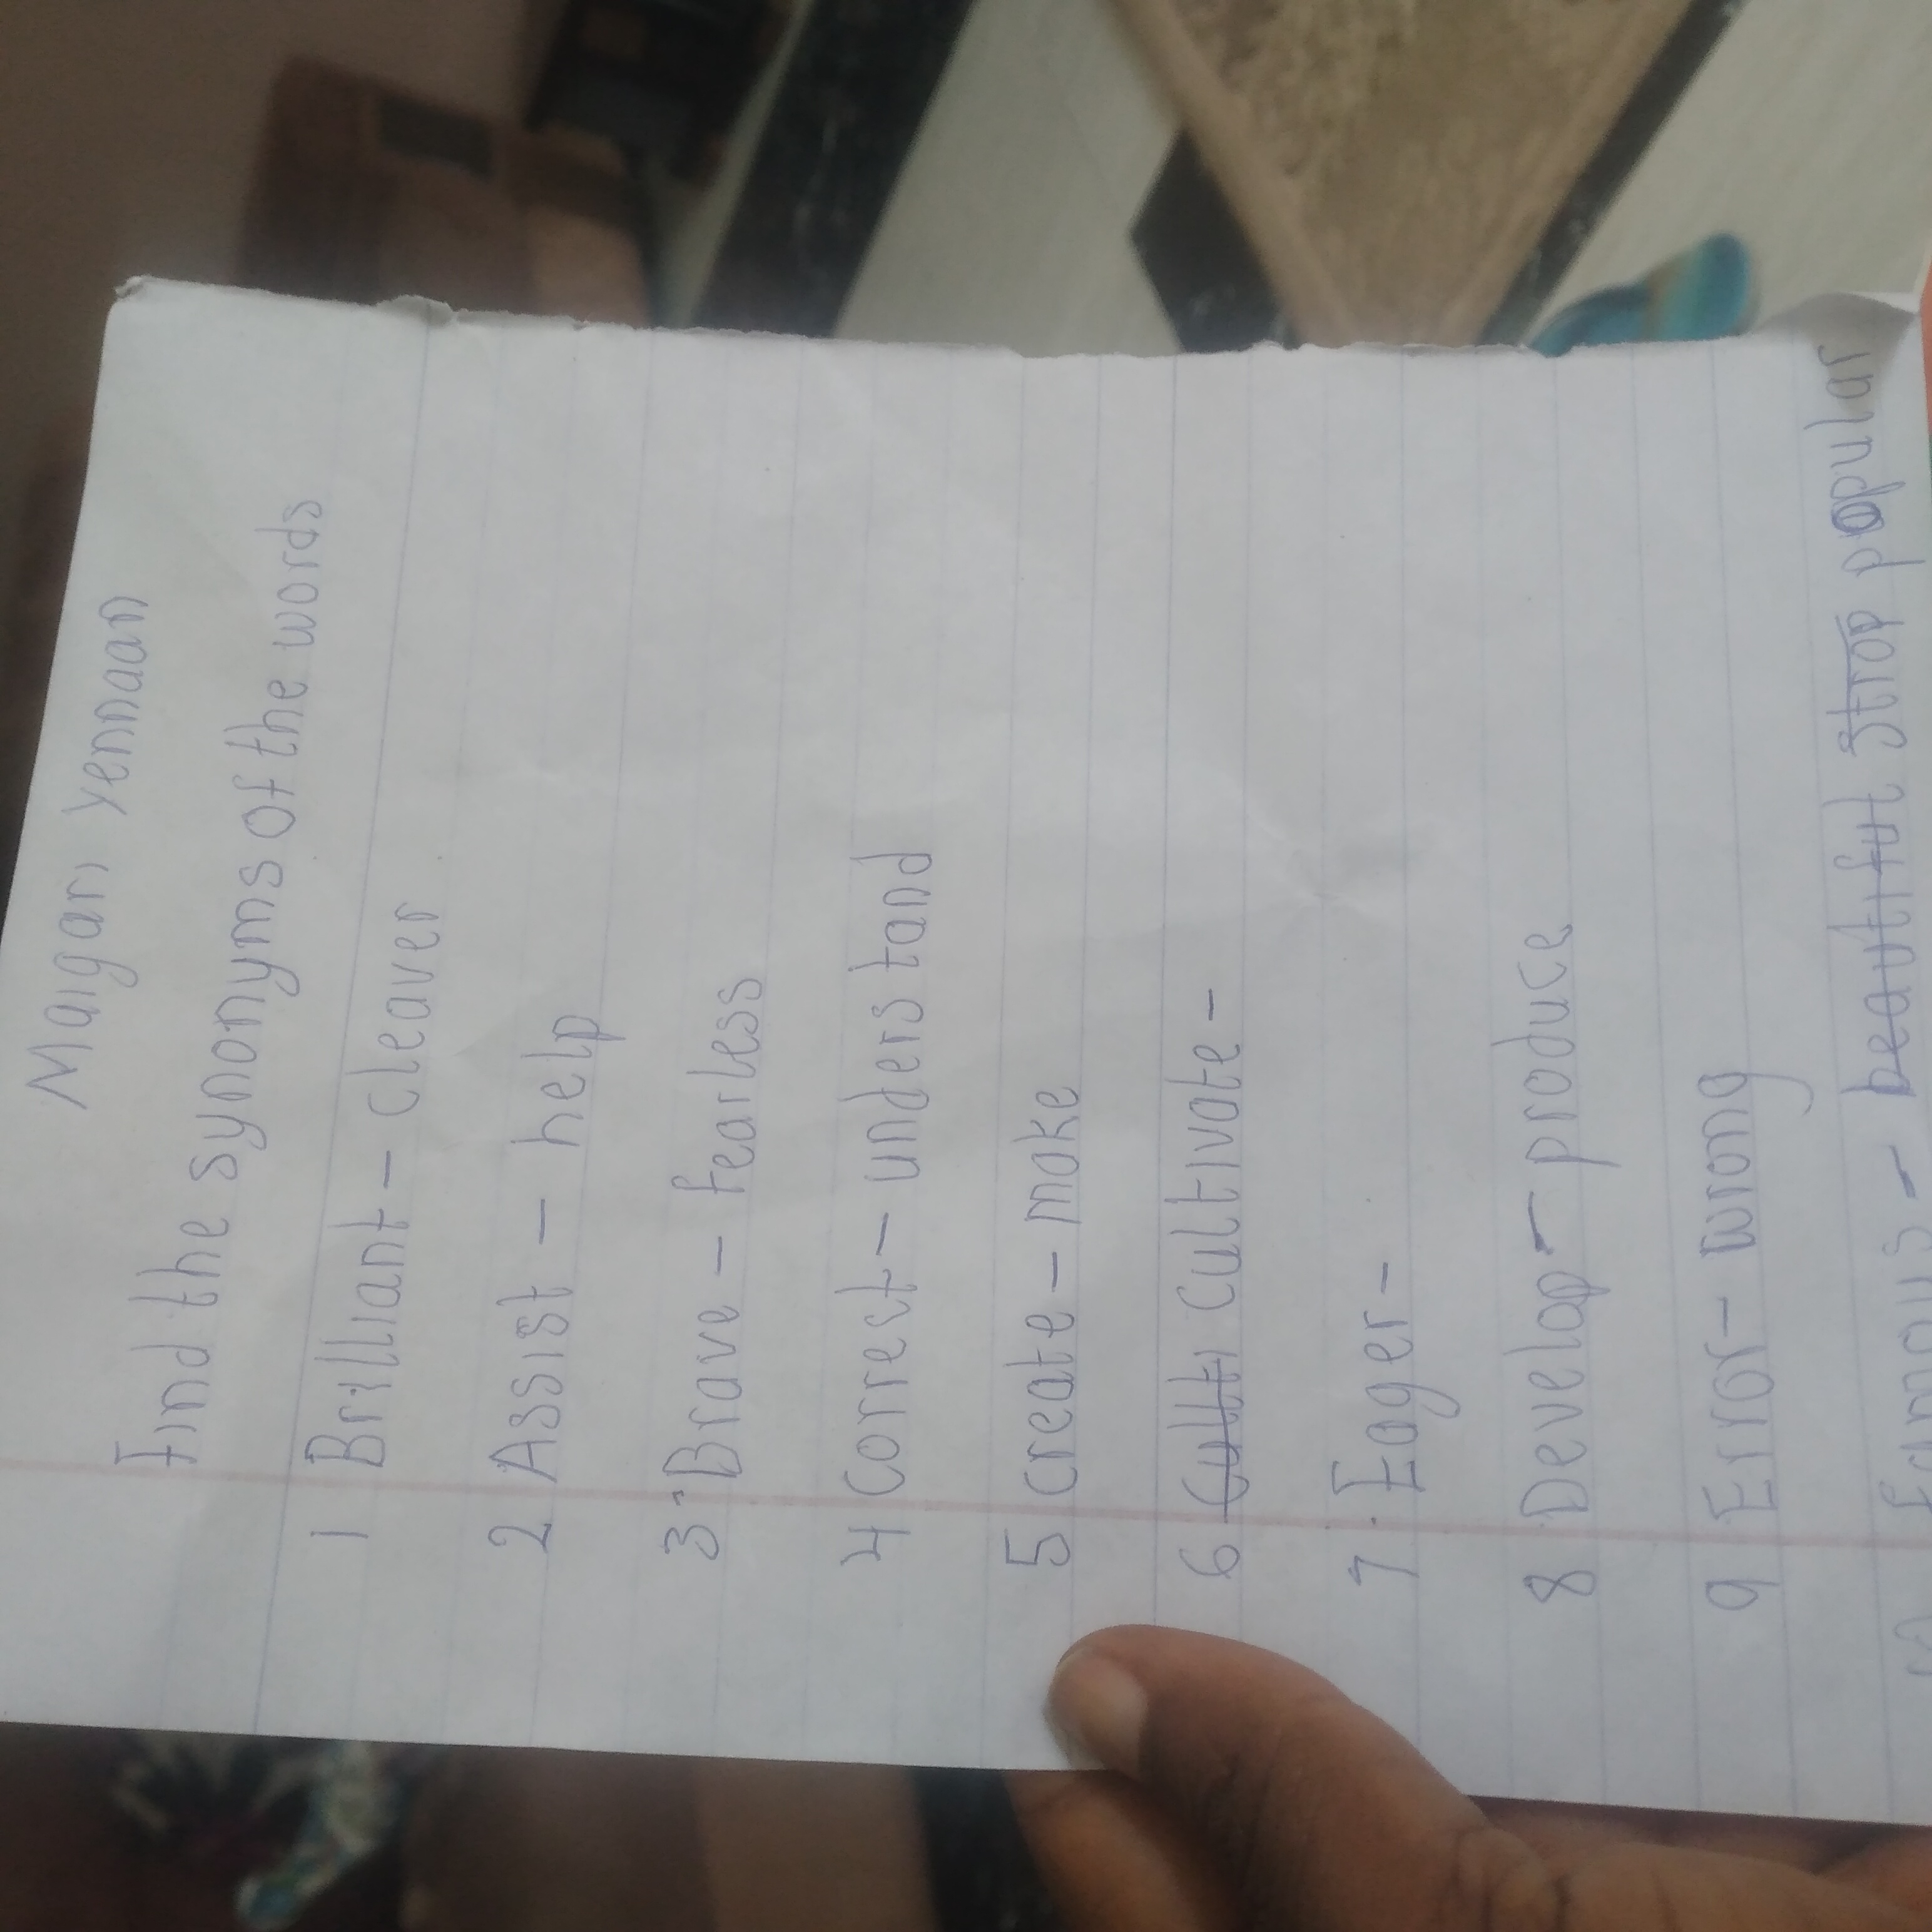 Maigari Yennaan
Find the synonyms of the words
1 Brilliant - Cleaver
2 Assist - help
3. Brave - fearless
4 Correct - understand
5 create - make
6 Culti Cultivate -
7. Eager -
8 Develop - produce
9 Error - wrong
Famous - beautiful Strop popular